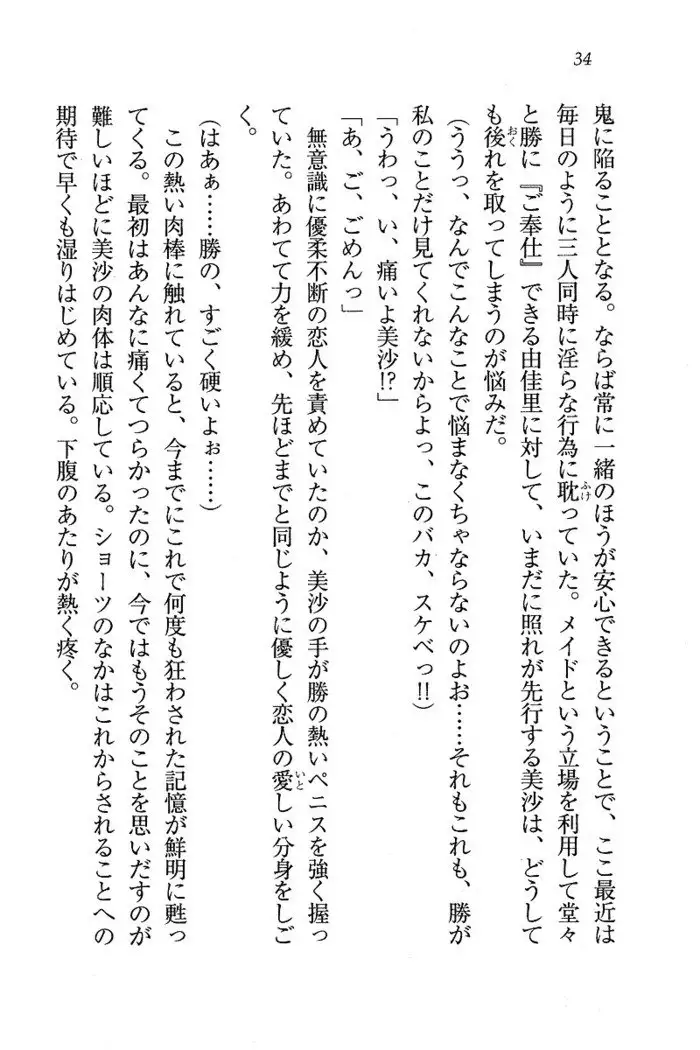 34
鬼に陥ることとなる。ならば常に一緒のほうが安心できるということで、ここ最近は
毎日のように三人同時に淫らな行為に耽っていた。メイドという立場を利用して堂々
と勝に『ご奉仕』できる由佳里に対して、いまだに照れが先行する美沙は、どうして
も後れを取ってしまうのが悩みだ。
(ううっ、なんでこんなことで悩まなくちゃならないのよぉ……それもこれも、勝が
私のことだけ見てくれないからよっ、このバカ、スケベっ!!)
「うわっ、い、痛いよ美沙!?」
「あ、ご、ごめんっ」
無意識に優柔不断の恋人を責めていたのか、美沙の手が勝の熱いペニスを強く握っ
ていた。あわてて力を緩め、先ほどまでと同じように優しく恋人の愛しい分身をしご
く。
(はあぁ……勝の、すごく硬いよぉ……)
この熱い肉棒に触れていると、今までにこれで何度も狂わされた記憶が鮮明に甦っ
てくる。最初はあんなに痛くてつらかったのに、今ではもうそのことを思いだすのが
難しいほどに美沙の肉体は順応している。ショーツのなかはこれからされることへの
期待で早くも湿りはじめている。下腹のあたりが熱く疼く。